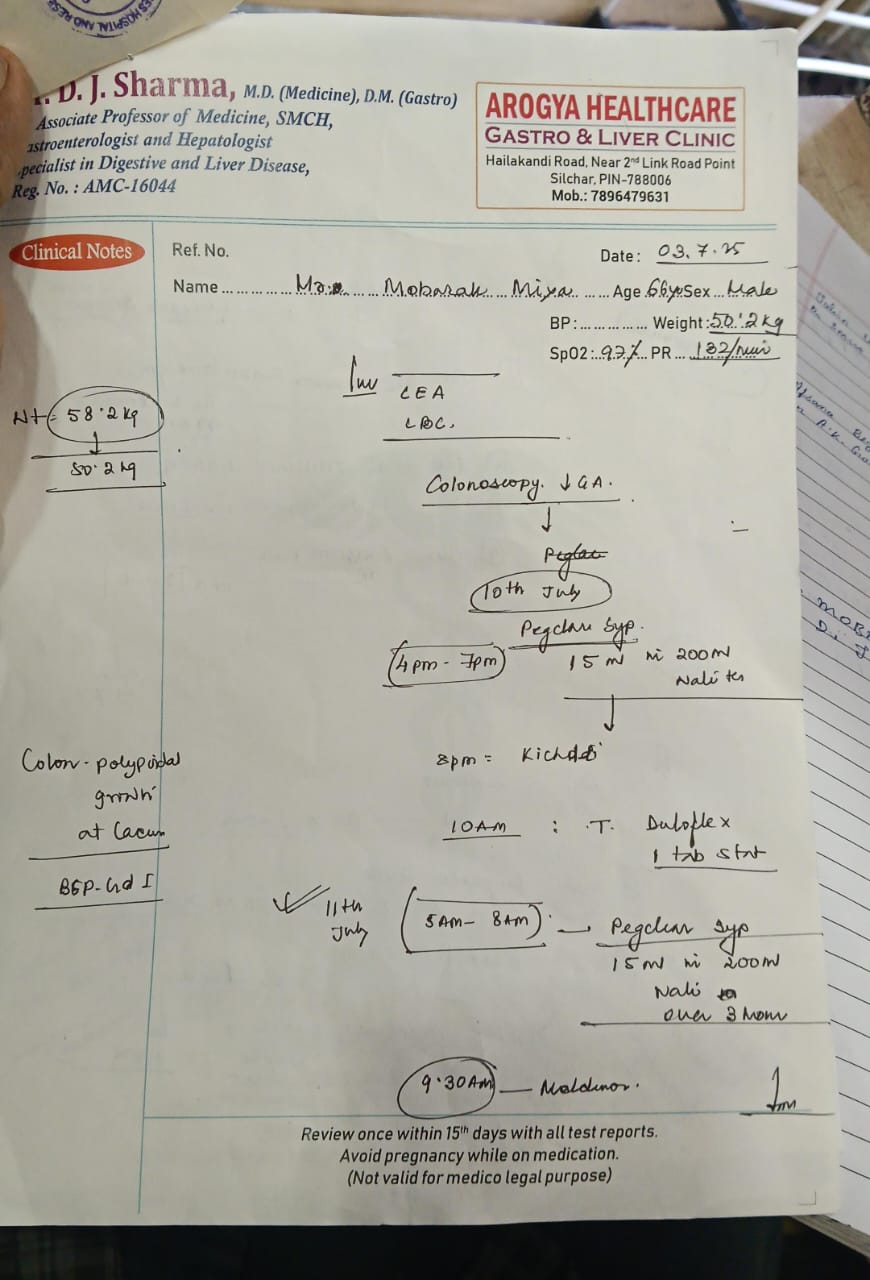 D. J. Sharma, M.D. (Medicine), D.M. (Gastro)
Associate Professor of Medicine, SMCH,
astroenterologist and Hepatologist
pecialist in Digestive and Liver Disease,
Reg. No. : AMC-16044
AROGYA HEALTHCARE
GASTRO & LIVER CLINIC
Hailakandi Road, Near 2nd Link Road Point
Silchar, PIN-788006
Mob.: 7896479631
Clinical Notes
Ref. No.
Date: 03.7.25
Name Mobarak Age 66 Sex Male
BP: Weight: 50.2 kg
SpO2: 97% PR 132/min
Inv
CEA
58.2 kg
50.2 kg
Colonoscopy. ↓ GA.
10th July
Pegclear Syp.
4pm - 7pm
15 ml in 200ml
8pm =
10AM : T. Duloflex
1 tab stat
Colon - polypoidal
growth
at
11th July
5AM - 8AM
Pegclear Syp
15ml in 200ml
over 3 hour
9.30AM
Review once within 15th days with all test reports.
Avoid pregnancy while on medication.
(Not valid for medico legal purpose)